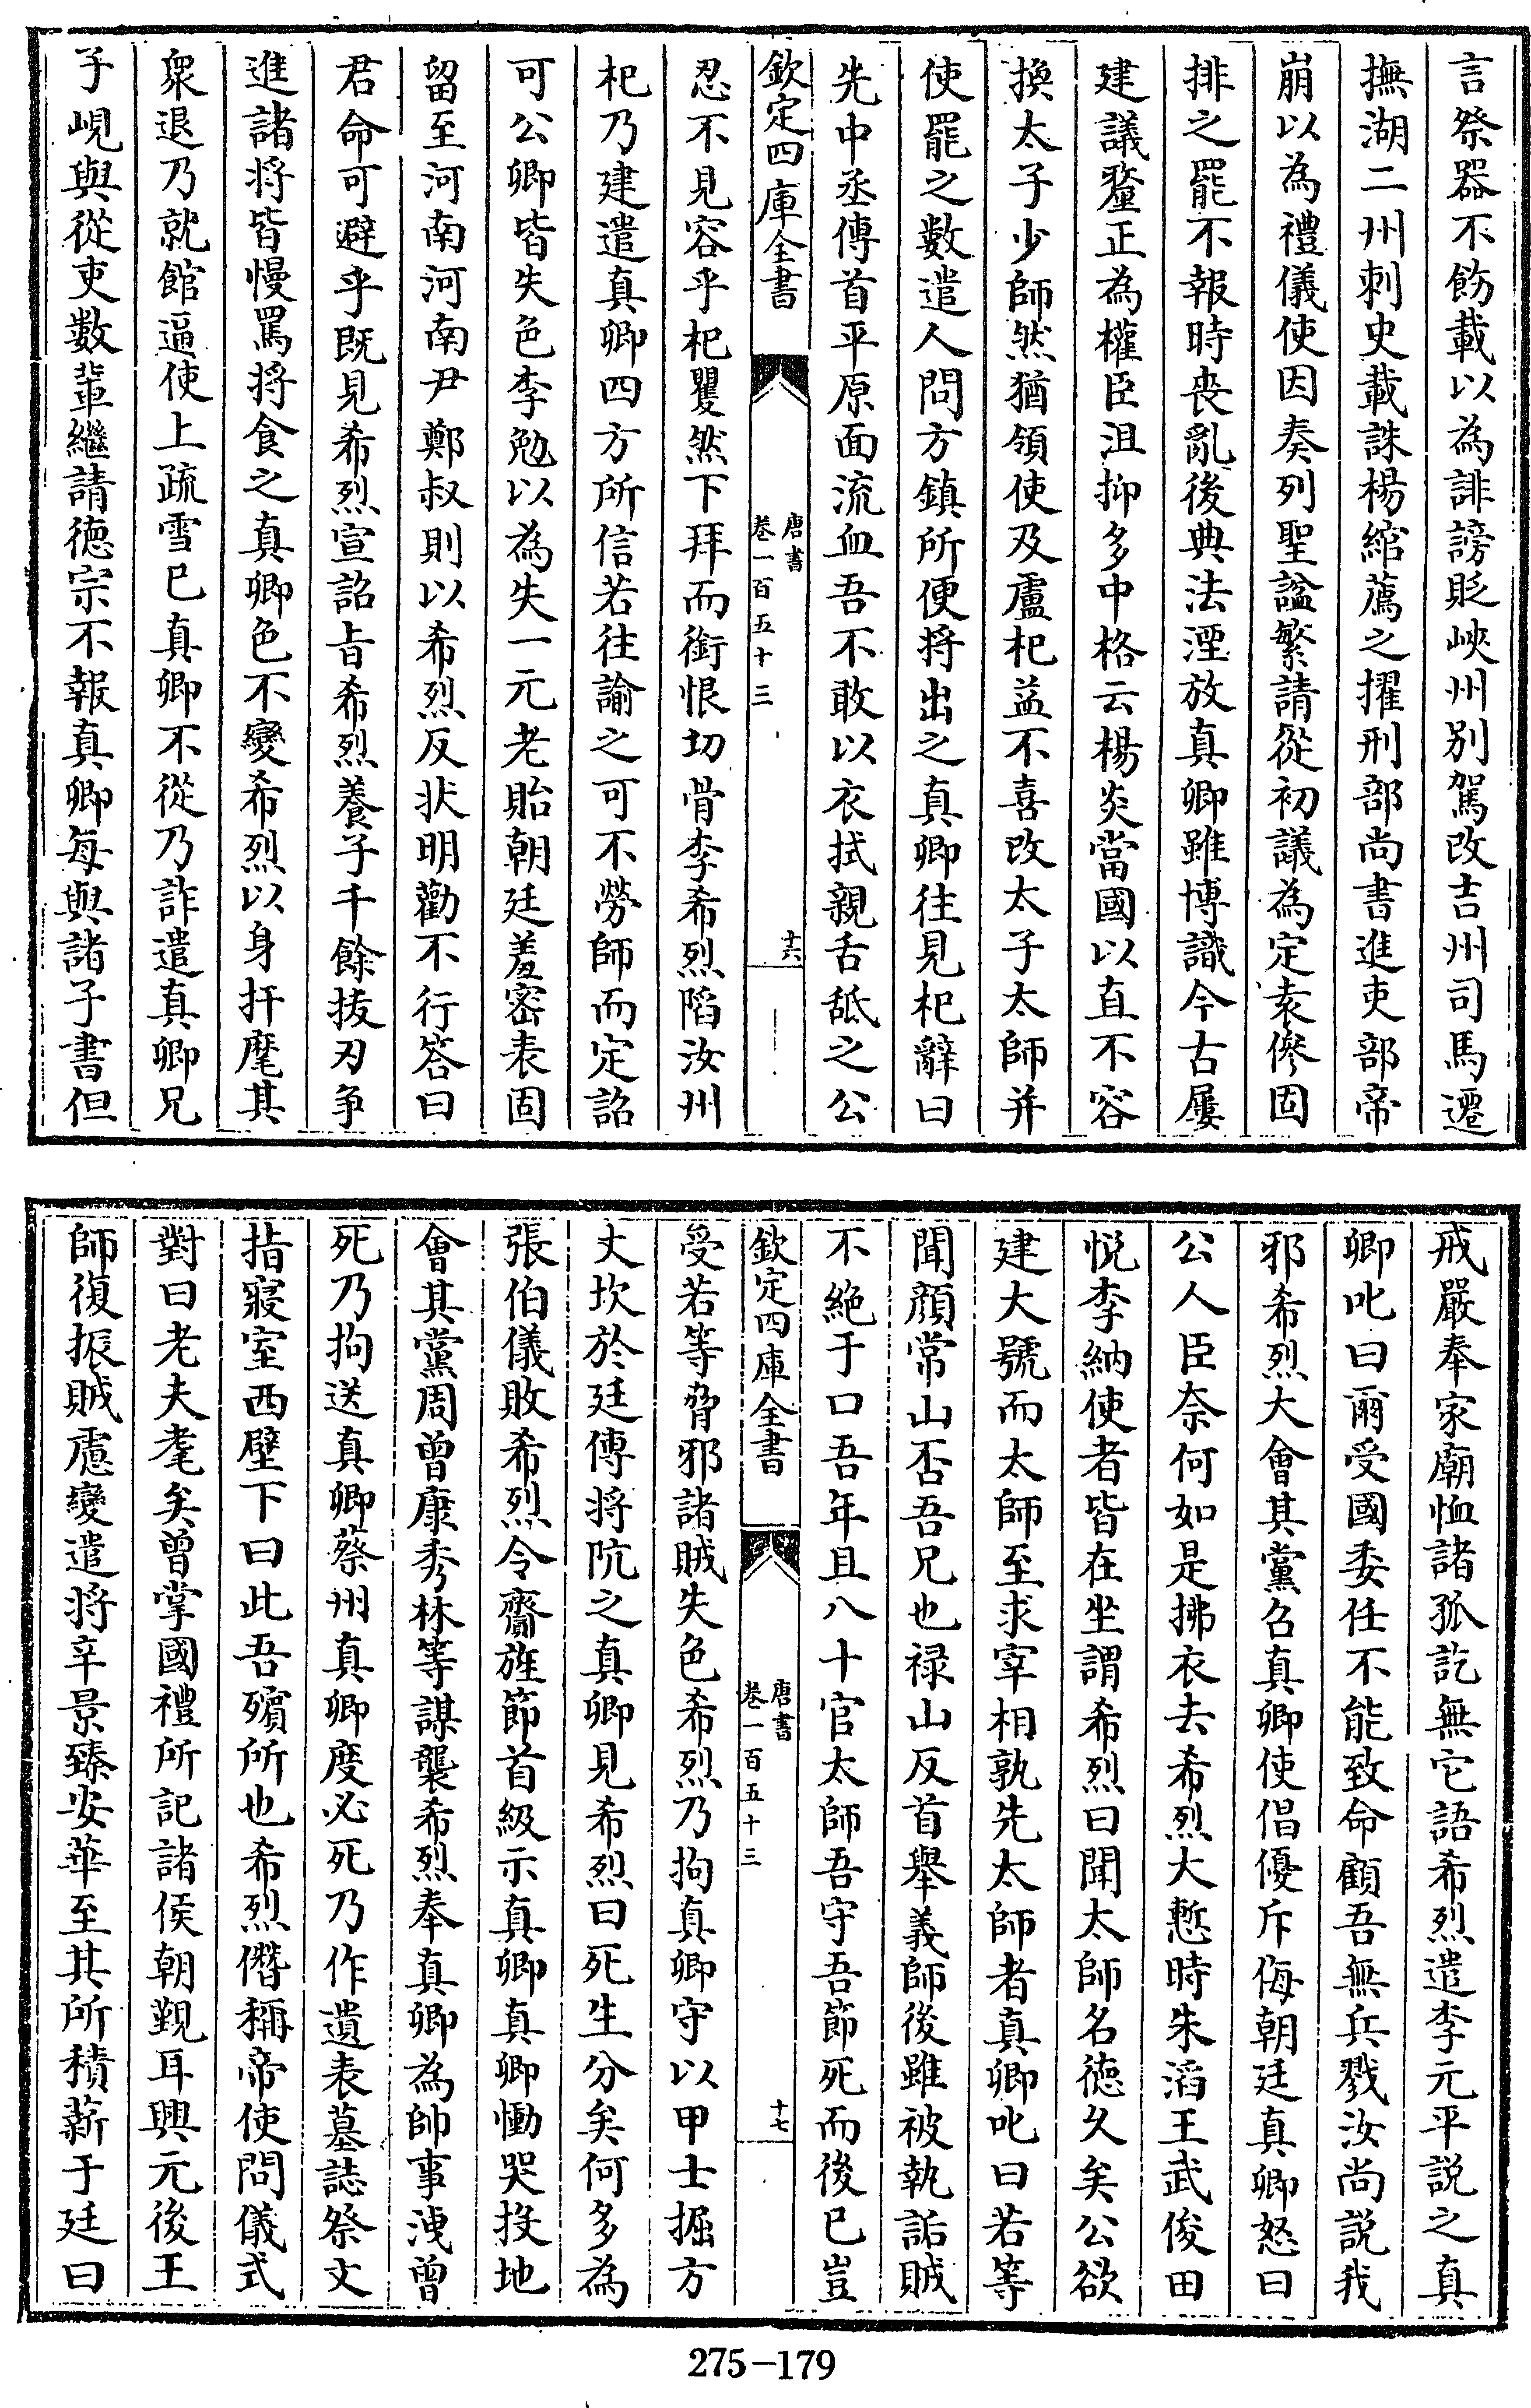 言祭器不飭載以為誹謗貶峽州别駕改吉州司馬遷
撫湖二州刺史載誅楊綰薦之擢刑部尚書進吏部帝
崩以為禮儀使因奏列聖謚繁請從初議為定袁傪固
排之罷不報時喪亂後典法湮放真卿雖博識今古屢
建議釐正為權臣沮抑多中格云楊炎當國以直不容
換太子少師然猶領使及盧杞益不喜改太子太師并
使罷之數遣人問方鎮所便將出之真卿往見杞辭曰
先中丞傳首平原面流血吾不敢以衣拭親舌䑛之公
欽定四庫全書
唐書
卷一百五十三
十六
忍不見容乎杞矍然下拜而銜恨切骨李希烈陷汝州
杞乃建遣真卿四方所信若往諭之可不勞師而定詔
可公卿皆失色李勉以為失一元老貽朝廷羞密表固
留至河南河南尹鄭叔則以希烈反状明勸不行答曰
君命可避乎既見希烈宣詔㫖希烈養子千餘拔刃争
進諸將皆慢罵將食之真卿色不變希烈以身扞麾其
衆退乃就館逼使上疏雪已真卿不從乃詐遣真卿兄
子峴與從吏數輩繼請德宗不報真卿每與諸子書但
戒嚴奉家廟恤諸孤訖無它語希烈遣李元平説之真
卿叱曰爾受國委任不能致命顧吾無兵戮汝尚説我
邪希烈大會其黨召真卿使倡優斥侮朝廷真卿怒曰
公人臣奈何如是拂衣去希烈大慙時朱滔王武俊田
悅李納使者皆在坐謂希烈曰聞太師名德久矣公欲
建大號而太師至求宰相孰先太師者真卿叱曰若等
聞顔常山否吾兄也禄山反首舉義師後雖被執詬賊
不絶于口吾年且八十官太師吾守吾節死而後已豈
欽定四庫全書
唐書
卷一百五十三
十七
受若等脅邪諸賊失色希烈乃拘真卿守以甲士掘方
丈坎於廷傳將阬之真卿見希烈曰死生分矣何多為
張伯儀敗希烈令齎旌節首級示真卿真卿慟哭投地
會其黨周曾康秀林等謀襲希烈奉真卿為帥事洩曾
死乃拘送真卿蔡州真卿度必死乃作遺表墓誌祭文
指寢室西壁下曰此吾殯所也希烈僭稱帝使問儀式
對曰老夫耄矣曾掌國禮所記諸侯朝覲耳興元後王
師復振賊慮變遣將辛景臻安華至其所積薪于廷曰
275-179